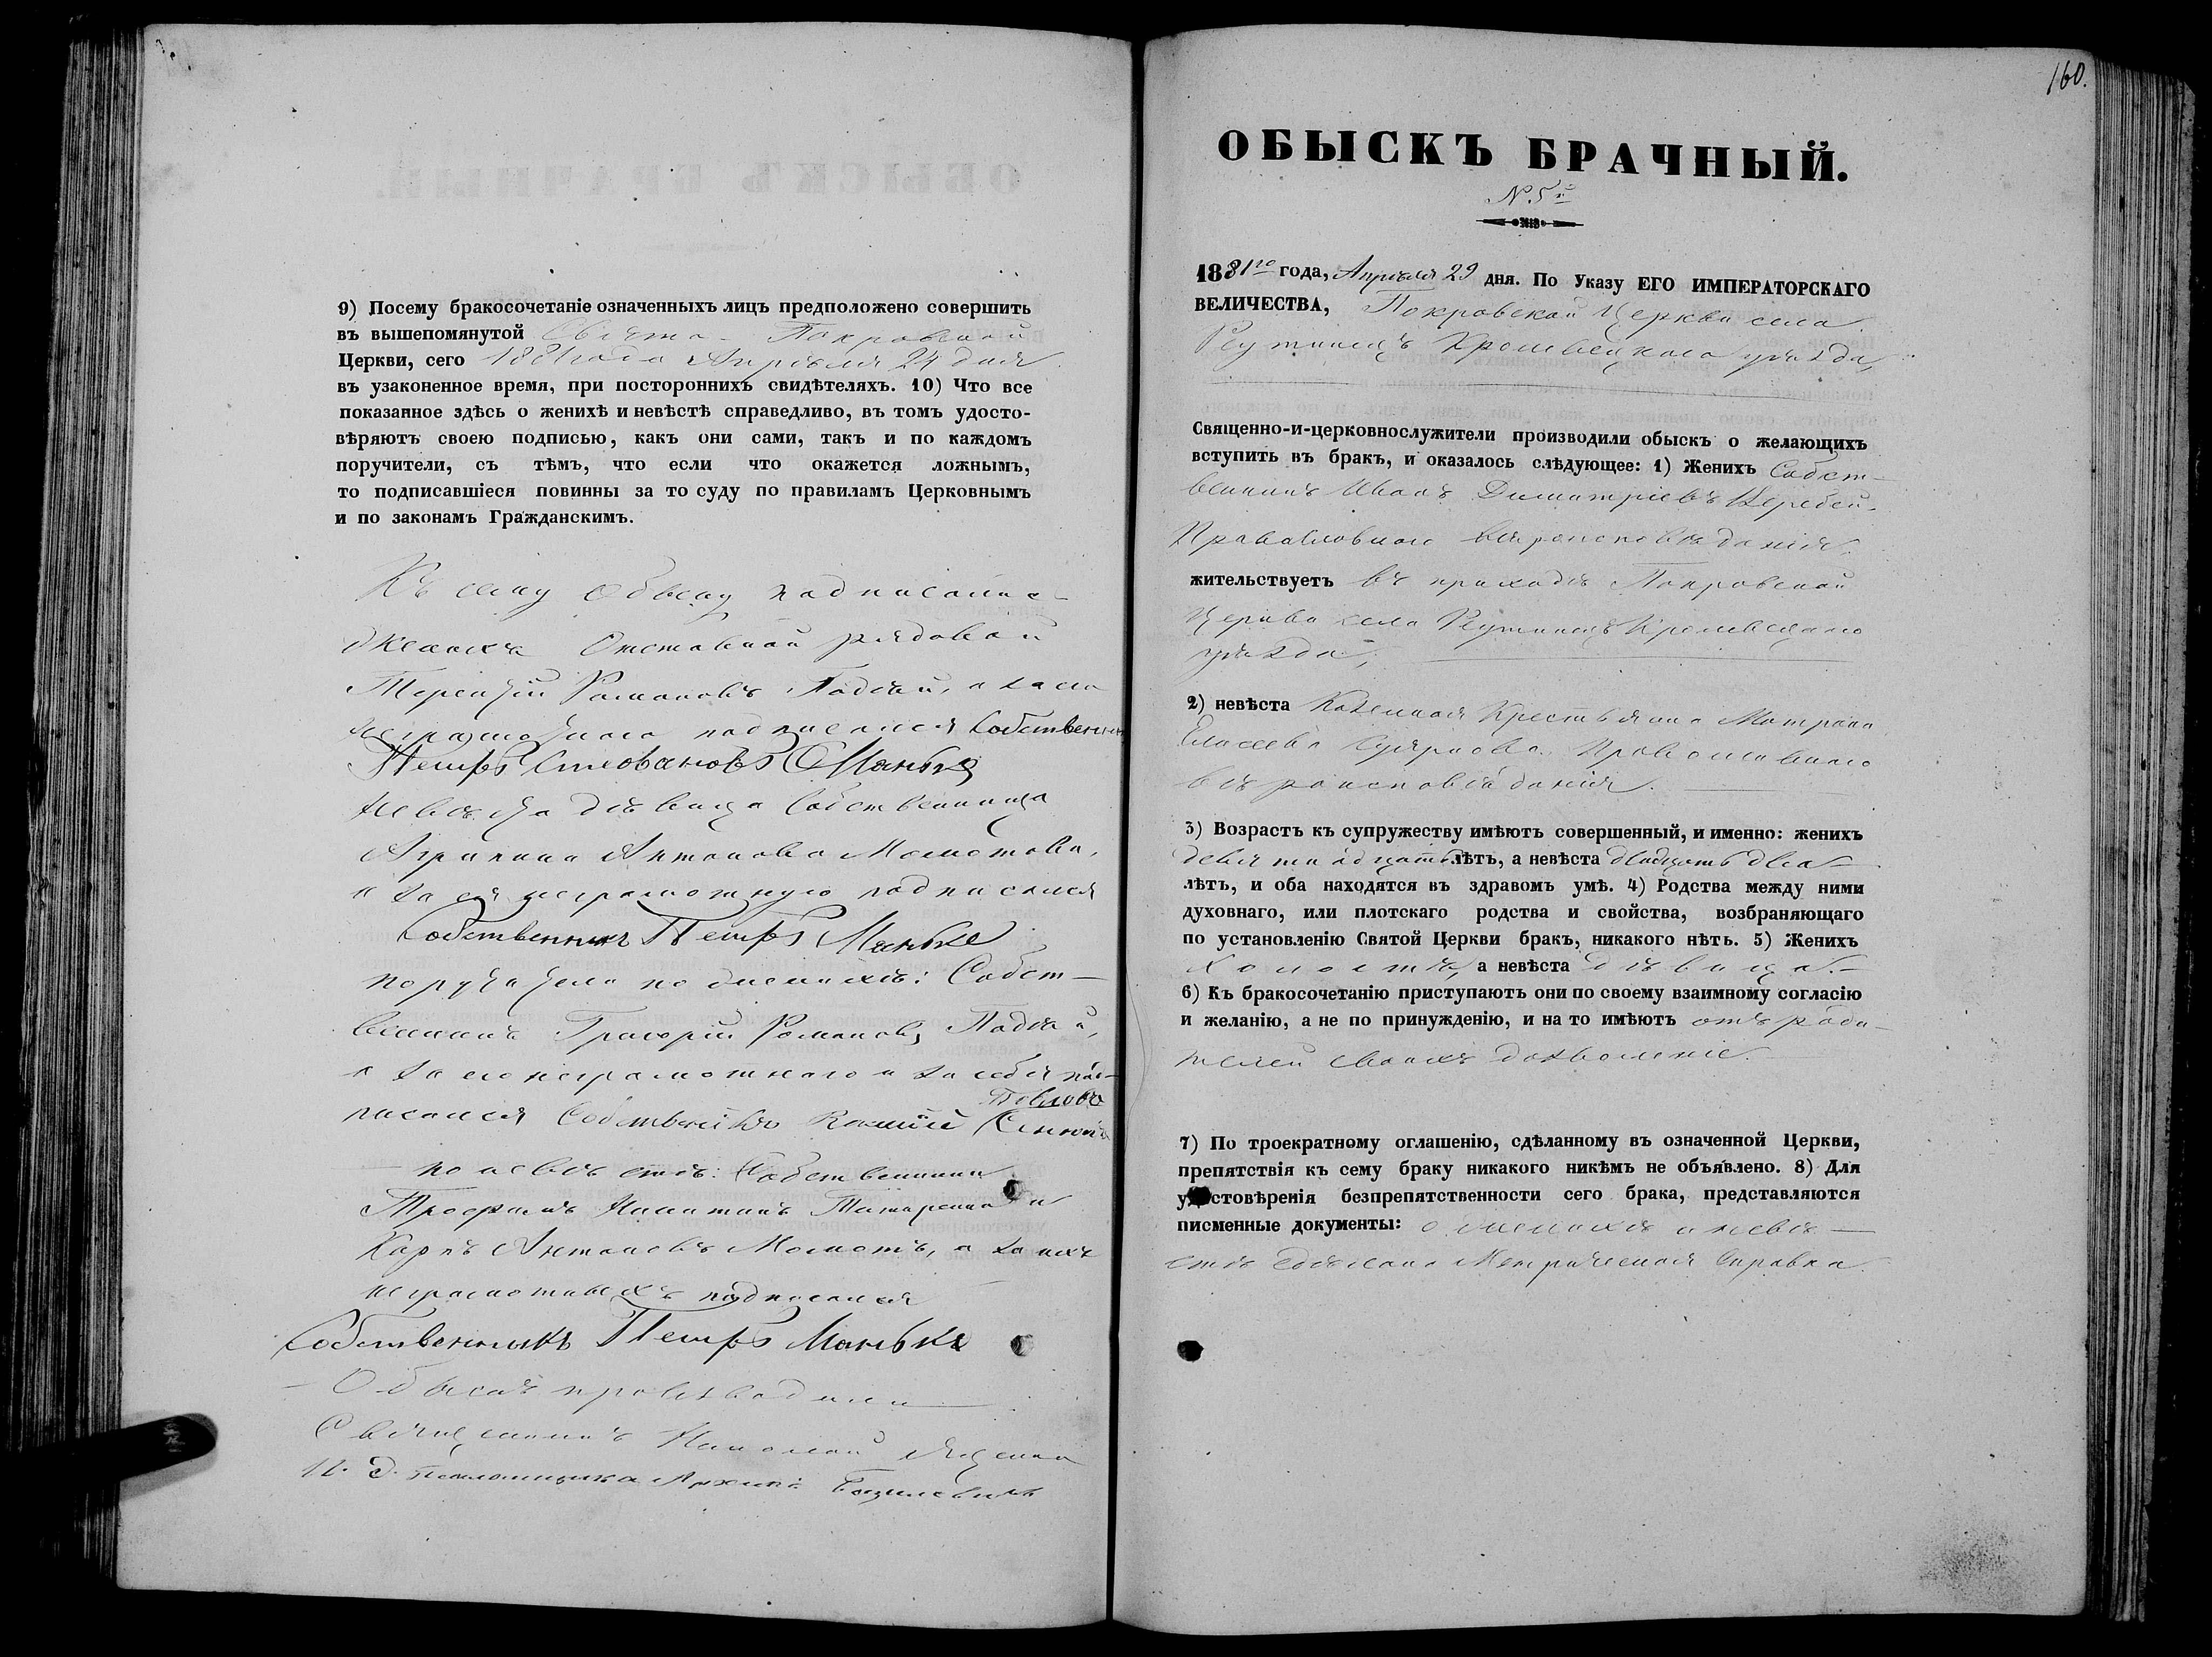 9) Посему бракосочетаніе означенныхъ лицъ предположено совершить
въ вышепомянутой Свято-Покровской
Церкви, сего 1881 года Апрѣля 24 дня
въ узаконенное время, при постороннихъ свидѣтеляхъ. 10) Что все
показанное здѣсь о женихѣ и невѣстѣ справедливо, въ томъ удосто-
вѣряютъ своею подписью, какъ они сами, такъ и по каждомъ
поручители, съ тѣмъ, что если что окажется ложнымъ,
то подписавшіеся повинны за то суду по правиламъ Церковнымъ
и по законамъ Гражданскимъ.
Къ сему обыску
женихъ Отставной рядовой
Терентій Романовъ а за него
неграмотнаго подписался Собственникъ
Петръ Манько
невѣста дѣвица Собственница
Агрипина Антонова
а за ея неграмотную подписался
Собственникъ Петръ Манько
поручители по женихѣ: Собст-
венникъ Григорій Романовъ
а за его неграмотнаго и за себя под-
писался Собственникъ
по невѣстѣ: Собственники
Трофимъ и
Карпъ Антоновъ а за ихъ
неграмотныхъ подписался
Собственникъ Петръ Манько
Обыскъ производили
Священникъ Николай
И. д. псаломщика
160.
ОБЫСКЪ БРАЧНЫЙ.
№ 5й
1881го года, Апрѣля 29 дня. По Указу ЕГО ИМПЕРАТОРСКАГО
ВЕЛИЧЕСТВА, Покровской Церкви села
Реутинецъ Кролевецкаго уѣзда,
Священно-и-церковнослужители производили обыскъ о желающихъ
вступить въ бракъ, и оказалось слѣдующее: 1) Женихъ Собст-
венникъ Иванъ Димитріевъ
Православнаго вѣроисповѣданія
жительствуетъ въ приходѣ Покровской
Церкви села Реутинецъ Кролевецкаго
уѣзда,
2) невѣста Казенная Крестьянка Матрона
Елисеева Православнаго
вѣроисповѣданія.
3) Возрастъ къ супружеству имѣютъ совершенный, и именно: женихъ
девятнадцать лѣтъ, а невѣста двадцать два
лѣтъ, и оба находятся въ здравомъ умѣ. 4) Родства между ними
духовнаго, или плотскаго родства и свойства, возбраняющаго
по установленію Святой Церкви бракъ, никакого нѣтъ. 5) Женихъ
холостъ, а невѣста дѣвица.
6) Къ бракосочетанію приступаютъ они по своему взаимному согласію
и желанію, а не по принужденію, и на то имѣютъ отъ роди-
телей своихъ дозволеніе.
7) По троекратному оглашенію, сдѣланному въ означенной Церкви,
препятствія къ сему браку никакого никѣмъ не объявлено. 8) Для
удостовѣренія безпрепятственности сего брака, представляются
писменные документы: о женихѣ и невѣ-
стѣ сдѣлана Метрическая справка.